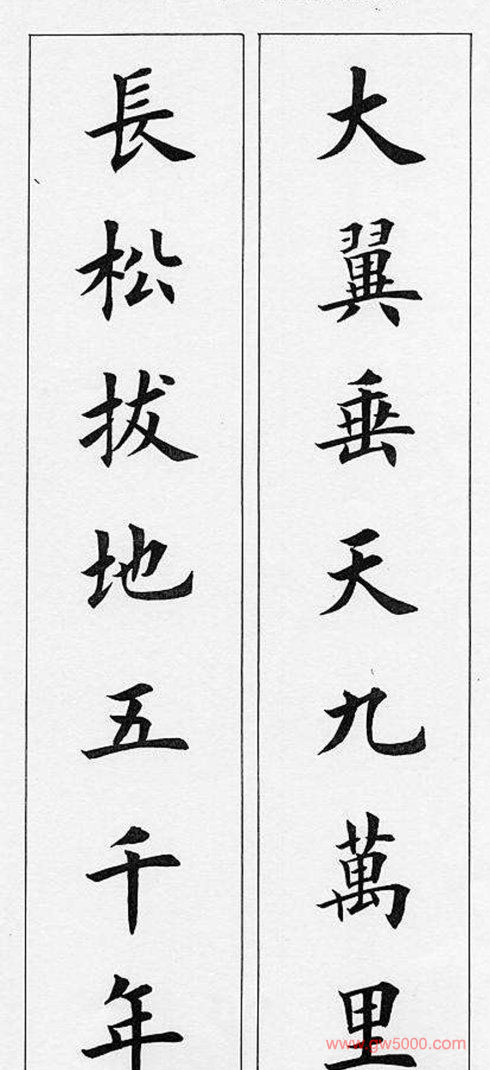 大翼垂天九萬里
長松拔地五千年
www.gw5000.com